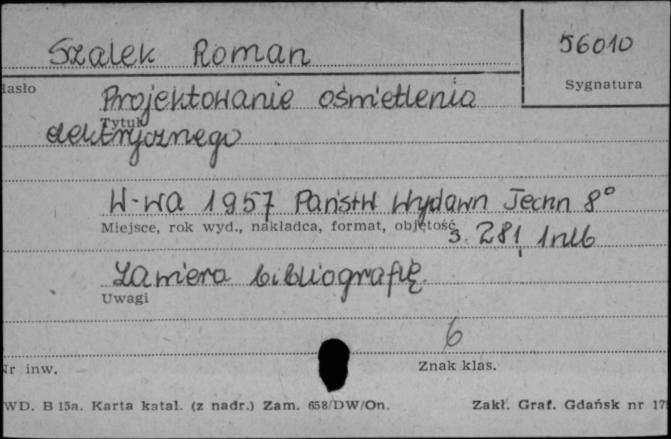 Szalek Roman
56010
Hasło
Sygnatura
Projektowanie oświetlenia
Tytuł
elektrycznego
W-wa 1957 Państw Wydawn Techn 8°
Miejsce, rok wyd., nakładca, format, objętość
s. 281, 1nlb
Zawiera bibliografię.
Uwagi
6
Nr inw.
Znak klas.
WD. B 15a. Karta katal. (z nadr.) Zam. 658/DW/On.
Zakł. Graf. Gdańsk nr 17